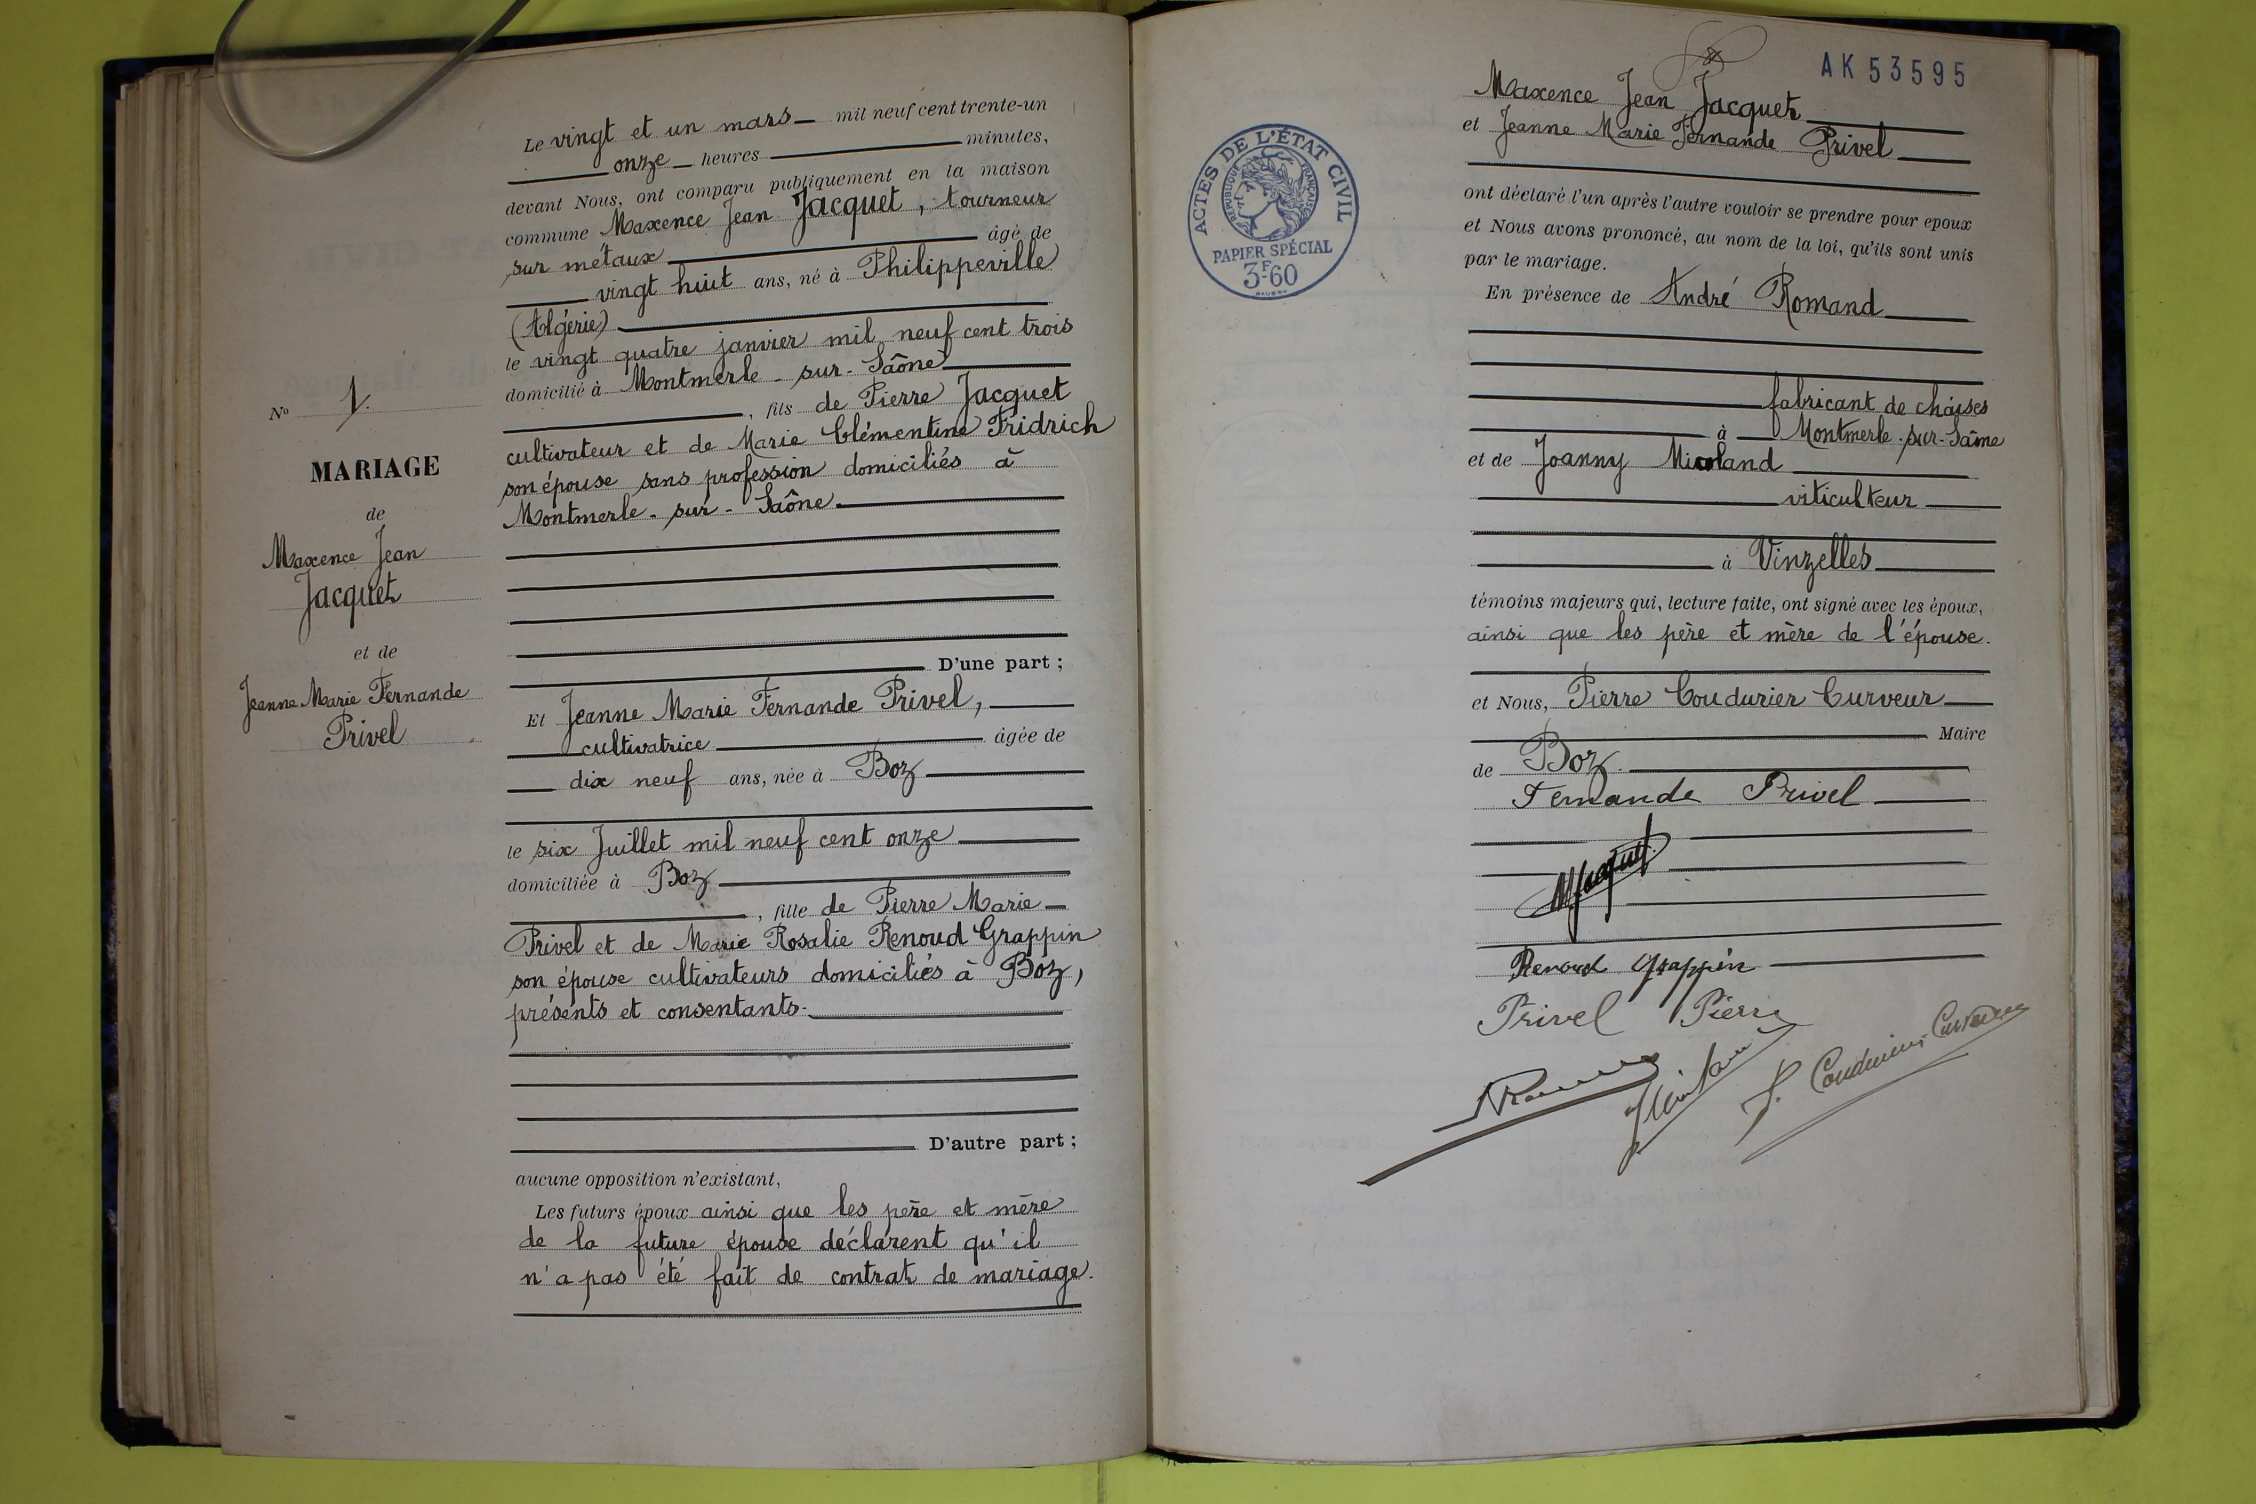 Le vingt et un mars mil neuf cent trente-un
onze heures minutes,
devant Nous, ont comparu publiquement en la maison
commune Maxence Jean Jacquet, tourneur
sur métaux âgé de
vingt huit ans, né à Philippeville
(Algérie)
le vingt quatre janvier mil neuf cent trois
domicilié à Montmerle-sur-Saône
, fils de Pierre Jacquet
cultivateur et de Marie Clémentine Fridrich
son épouse sans profession domiciliés à
Montmerle-sur-Saône.
D'une part ;
Et Jeanne Marie Fernande Privel,
cultivatrice âgée de
dix neuf ans, née à Boz
le six Juillet mil neuf cent onze
domiciliée à Boz
, fille de Pierre Marie
Privel et de Marie Rosalie Renoud Grappin
son épouse cultivateurs domiciliés à Boz,
présents et consentants.
D'autre part ;
aucune opposition n'existant,
Les futurs époux ainsi que les père et mère
de la future épouse déclarent qu'il
n'a pas été fait de contrat de mariage.
No 1.
MARIAGE
de
Maxence Jean
Jacquet
et de
Jeanne Marie Fernande
Privel
AK 53595
ACTES DE L'ÉTAT CIVIL
RÉPUBLIQUE FRANÇAISE
PAPIER SPÉCIAL
3F60
Maxence Jean Jacquet
et Jeanne Marie Fernande Privel
ont déclaré l'un après l'autre vouloir se prendre pour epoux
et Nous avons prononcé, au nom de la loi, qu'ils sont unis
par le mariage.
En présence de André Romand
fabricant de chaises
à Montmerle-sur-Saône
et de Joanny Micoland
viticulteur
à Vinzelles
témoins majeurs qui, lecture faite, ont signé avec les époux,
ainsi que les père et mère de l'épouse.
et Nous, Pierre Coudurier Curveur
Maire
de Boz.
Fernande Privel
MJacquet
Renoud Grappin
Privel Pierre
P. Coudurier-Curveur